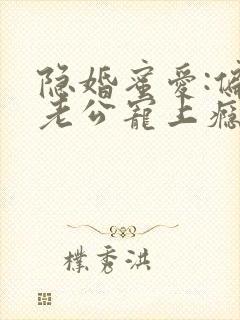 隐婚蜜爱:偏
老公宠上瘾
樸秀洪